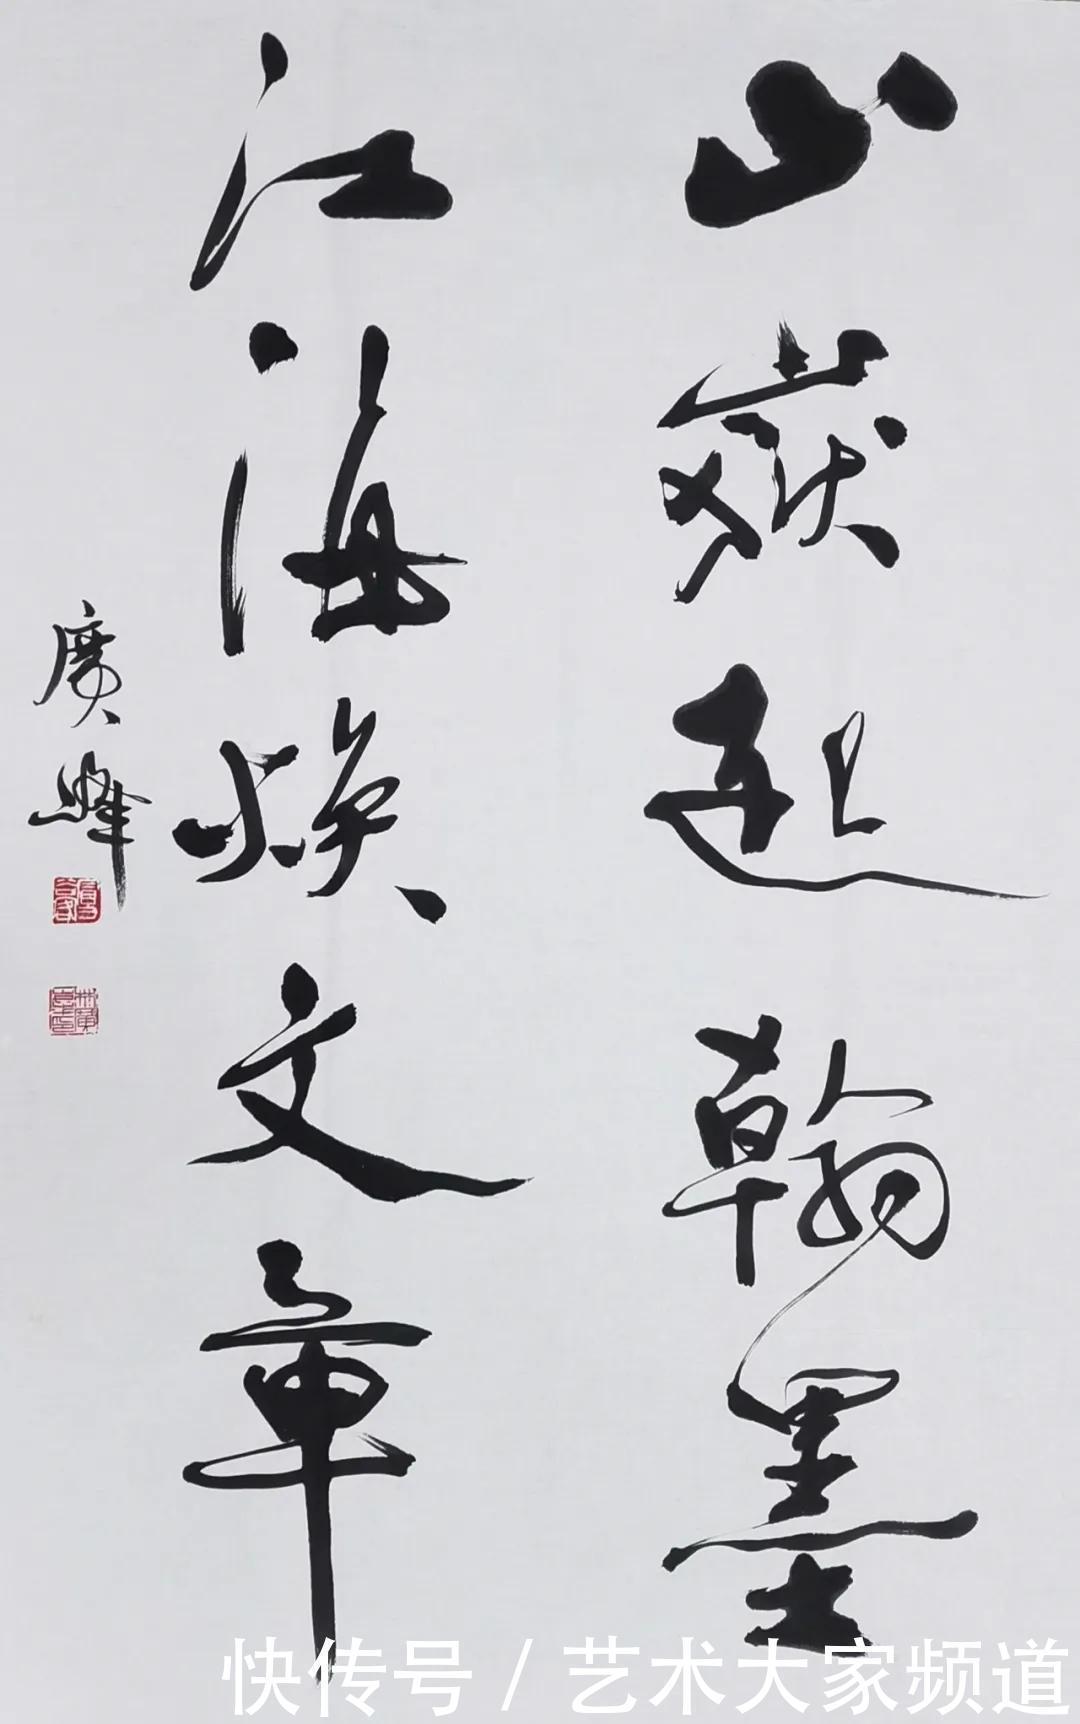 山嶽起翰墨
江海焕文章
廣峰
快传号 / 艺术大家频道